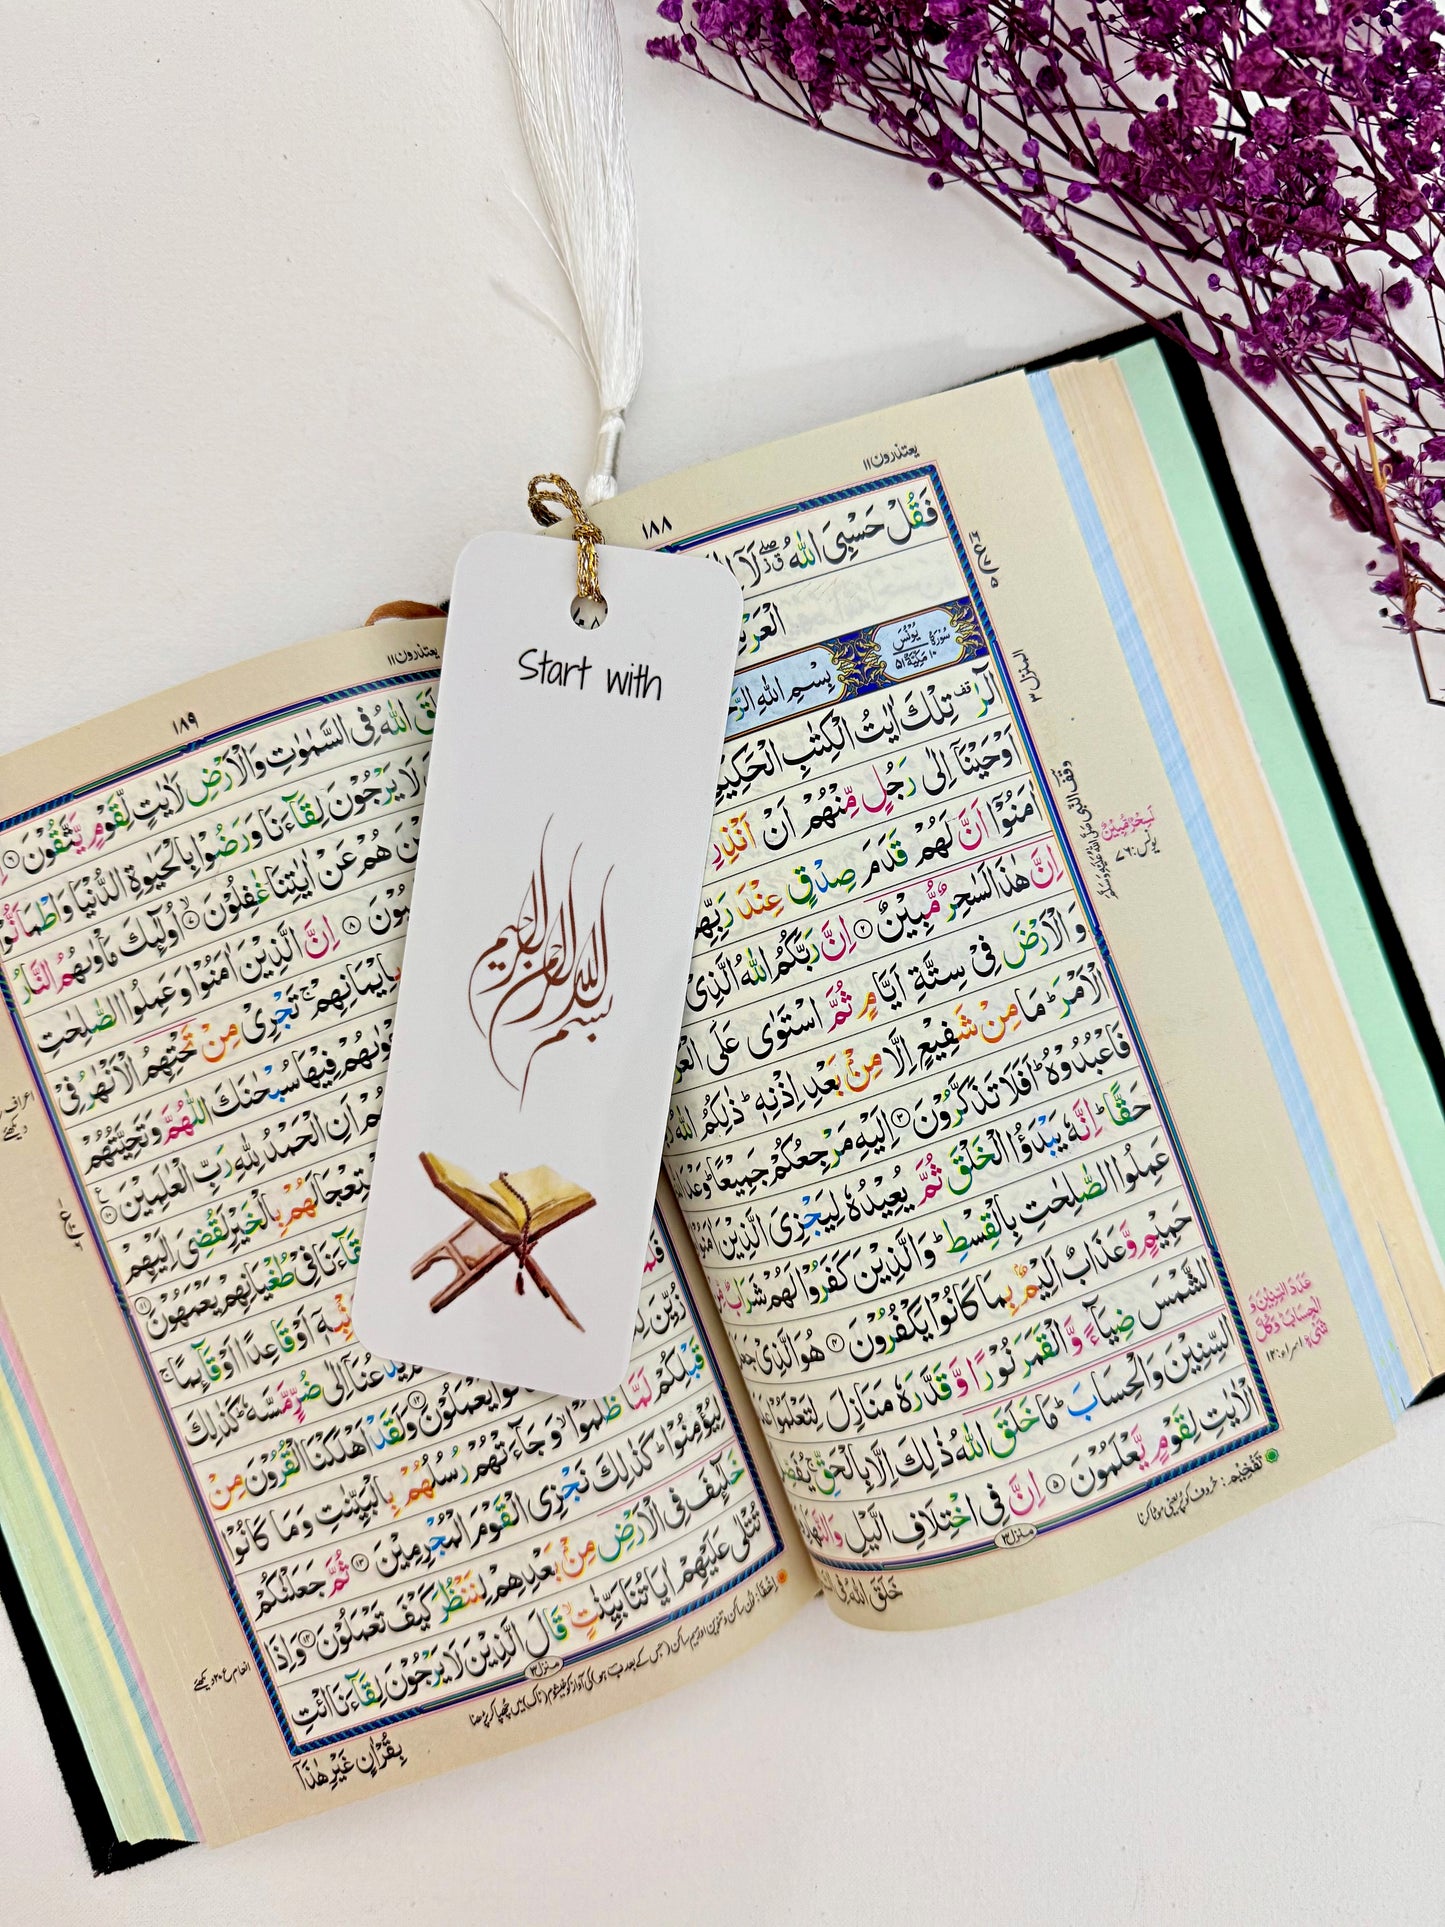 Start with
بسم الله الرحمن الرحيم
یعتذرون ۱۱
۱۸۸
فَقُلْ حَسْبِيَ اللهُ لَآ
سُوْرَةُ يُوْنُسَ
مَكِّيَّةٌ
بِسْمِ اللهِ
الٓرٰ تِلْكَ اٰيٰتُ الْكِتٰبِ الْحَكِيْمِ
اَوْحَيْنَآ اِلٰى رَجُلٍ مِّنْهُمْ اَنْ اَنْذِرِ
اٰمَنُوْٓا اَنَّ لَهُمْ قَدَمَ صِدْقٍ عِنْدَ رَبِّهِمْ
اِنَّ هٰذَا لَسٰحِرٌ مُّبِيْنٌ ۲ اِنَّ رَبَّكُمُ اللهُ الَّذِيْ
وَالْاَرْضَ فِيْ سِتَّةِ اَيَّامٍ ثُمَّ اسْتَوٰى عَلَى
الْاَمْرَ مَا مِنْ شَفِيْعٍ اِلَّا مِنْۢ بَعْدِ اِذْنِهٖ ذٰلِكُمُ اللهُ
فَاعْبُدُوْهُ اَفَلَا تَذَكَّرُوْنَ ۳ اِلَيْهِ مَرْجِعُكُمْ جَمِيْعًا
حَقًّا اِنَّهٗ يَبْدَؤُا الْخَلْقَ ثُمَّ يُعِيْدُهٗ لِيَجْزِيَ الَّذِيْنَ
عَمِلُوا الصّٰلِحٰتِ بِالْقِسْطِ وَالَّذِيْنَ كَفَرُوْا لَهُمْ شَرَابٌ
حَمِيْمٍ وَّعَذَابٌ اَلِيْمٌۢ بِمَا كَانُوْا يَكْفُرُوْنَ ۴ هُوَ الَّذِيْ
الشَّمْسَ ضِيَآءً وَّالْقَمَرَ نُوْرًا وَّقَدَّرَهٗ مَنَازِلَ لِتَعْلَمُوْا
السِّنِيْنَ وَالْحِسَابَ مَا خَلَقَ اللهُ ذٰلِكَ اِلَّا بِالْحَقِّ
الْاٰيٰتِ لِقَوْمٍ يَّعْلَمُوْنَ ۵ اِنَّ فِي اخْتِلَافِ الَّيْلِ وَالنَّهَارِ
منزل ۳
یعتذرون ۱۱
۱۸۹
اللهُ فِي السَّمٰوٰتِ وَالْاَرْضِ لَاٰيٰتٍ لِّقَوْمٍ يَّتَّقُوْنَ ۶
لَا يَرْجُوْنَ لِقَآءَنَا وَرَضُوْا بِالْحَيٰوةِ الدُّنْيَا وَاطْمَاَنُّوْا
هُمْ عَنْ اٰيٰتِنَا غٰفِلُوْنَ ۷ اُولٰٓئِكَ مَاْوٰىهُمُ النَّارُ
۸ اِنَّ الَّذِيْنَ اٰمَنُوْا وَعَمِلُوا الصّٰلِحٰتِ
بِاِيْمَانِهِمْ تَجْرِيْ مِنْ تَحْتِهِمُ الْاَنْهٰرُ فِيْ
فِيْهَا سُبْحٰنَكَ اللّٰهُمَّ وَتَحِيَّتُهُمْ
اَنِ الْحَمْدُ لِلّٰهِ رَبِّ الْعٰلَمِيْنَ ۱۰
لَهُمْ بِالْخَيْرِ لَقُضِيَ اِلَيْهِمْ
لِقَآءَنَا فِيْ طُغْيَانِهِمْ يَعْمَهُوْنَ ۱۱
اَوْ قَاعِدًا اَوْ قَآئِمًا
اِلٰى ضُرٍّ مَّسَّهٗ كَذٰلِكَ
يَعْمَلُوْنَ ۱۲ وَلَقَدْ اَهْلَكْنَا الْقُرُوْنَ مِنْ
قَبْلِكُمْ لَمَّا ظَلَمُوْا وَجَآءَتْهُمْ رُسُلُهُمْ بِالْبَيِّنٰتِ وَمَا كَانُوْا
لِيُؤْمِنُوْا كَذٰلِكَ نَجْزِي الْقَوْمَ الْمُجْرِمِيْنَ ۱۳ ثُمَّ جَعَلْنٰكُمْ
خَلٰٓئِفَ فِي الْاَرْضِ مِنْۢ بَعْدِهِمْ لِنَنْظُرَ كَيْفَ تَعْمَلُوْنَ ۱۴ وَاِذَا
تُتْلٰى عَلَيْهِمْ اٰيَاتُنَا بَيِّنٰتٍ قَالَ الَّذِيْنَ لَا يَرْجُوْنَ لِقَآءَنَا ائْتِ
منزل ۳
بِقُرْاٰنٍ غَيْرِ هٰذَآ